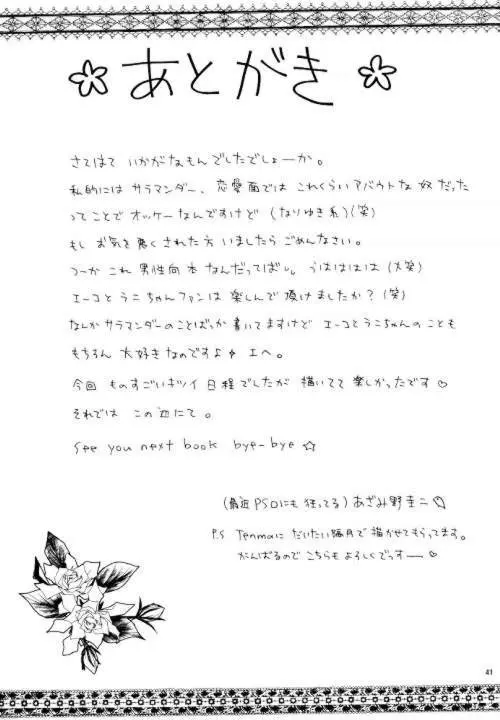 あとがき
さてはて いかがなもんでしたでしょーか。
私的には サラマンダー、恋愛面では これくらい アバウトな 奴だった
ってことで オッケーなんですけど (なりゆき系)(笑)
もし お気を悪くされた方 いましたら ごめんなさい。
つーか これ 男性向本 なんだってば。 うはははは (大笑)
エーコとラニちゃんファンは 楽しんで頂けましたか？(笑)
なんかサラマンダーのことばっか書いてますけど エーコとラニちゃんのことも
もちろん 大好きなのですよ エへ。
今回 ものすごいキツイ日程でしたが 描いてて 楽しかったです♡
それでは この辺にて。
See you next book bye-bye ☆
(最近PSOにも狂ってる) あざみ野圭二
P.S Tenmaに だいたい隔月で描かせてもらってます。
がんばるので こちらも よろしくでっすー♡
41